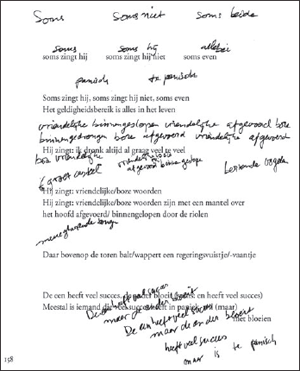 Soms Soms niet Soms beide
soms soms hij allebei
soms zingt hij soms hij niet soms even
panisch te panisch
Soms zingt hij, soms zingt hij niet, soms even
Het geldigheidsbereik is alles in het leven
vriendelijke binnengeslopen vriendelijke afgevoerd boze
binnengedrongen boze afgevoerd vriendelijke afgevoerd
Hij zingt: ik dronk altijd al graag veel te veel
boze vriendelijke
Hij zingt: vriendelijke/boze woorden
Hij zingt: vriendelijke/boze woorden zijn met een mantel over
het hoofd afgevoerd/ binnengelopen door de riolen
Daar bovenop de toren balt/wappert een regeringsvuistje/-vaantje
De een heeft veel succes, de ander bloeit (bloeit en heeft veel succes)
Meestal is iemand die veel succes heeft in paniek (maar)
De een heeft veel succes
maar de ander bloeit
niet bloeien
De een heeft veel succes
maar de ander bloeit
heeft veel succes
maar is te panisch
158